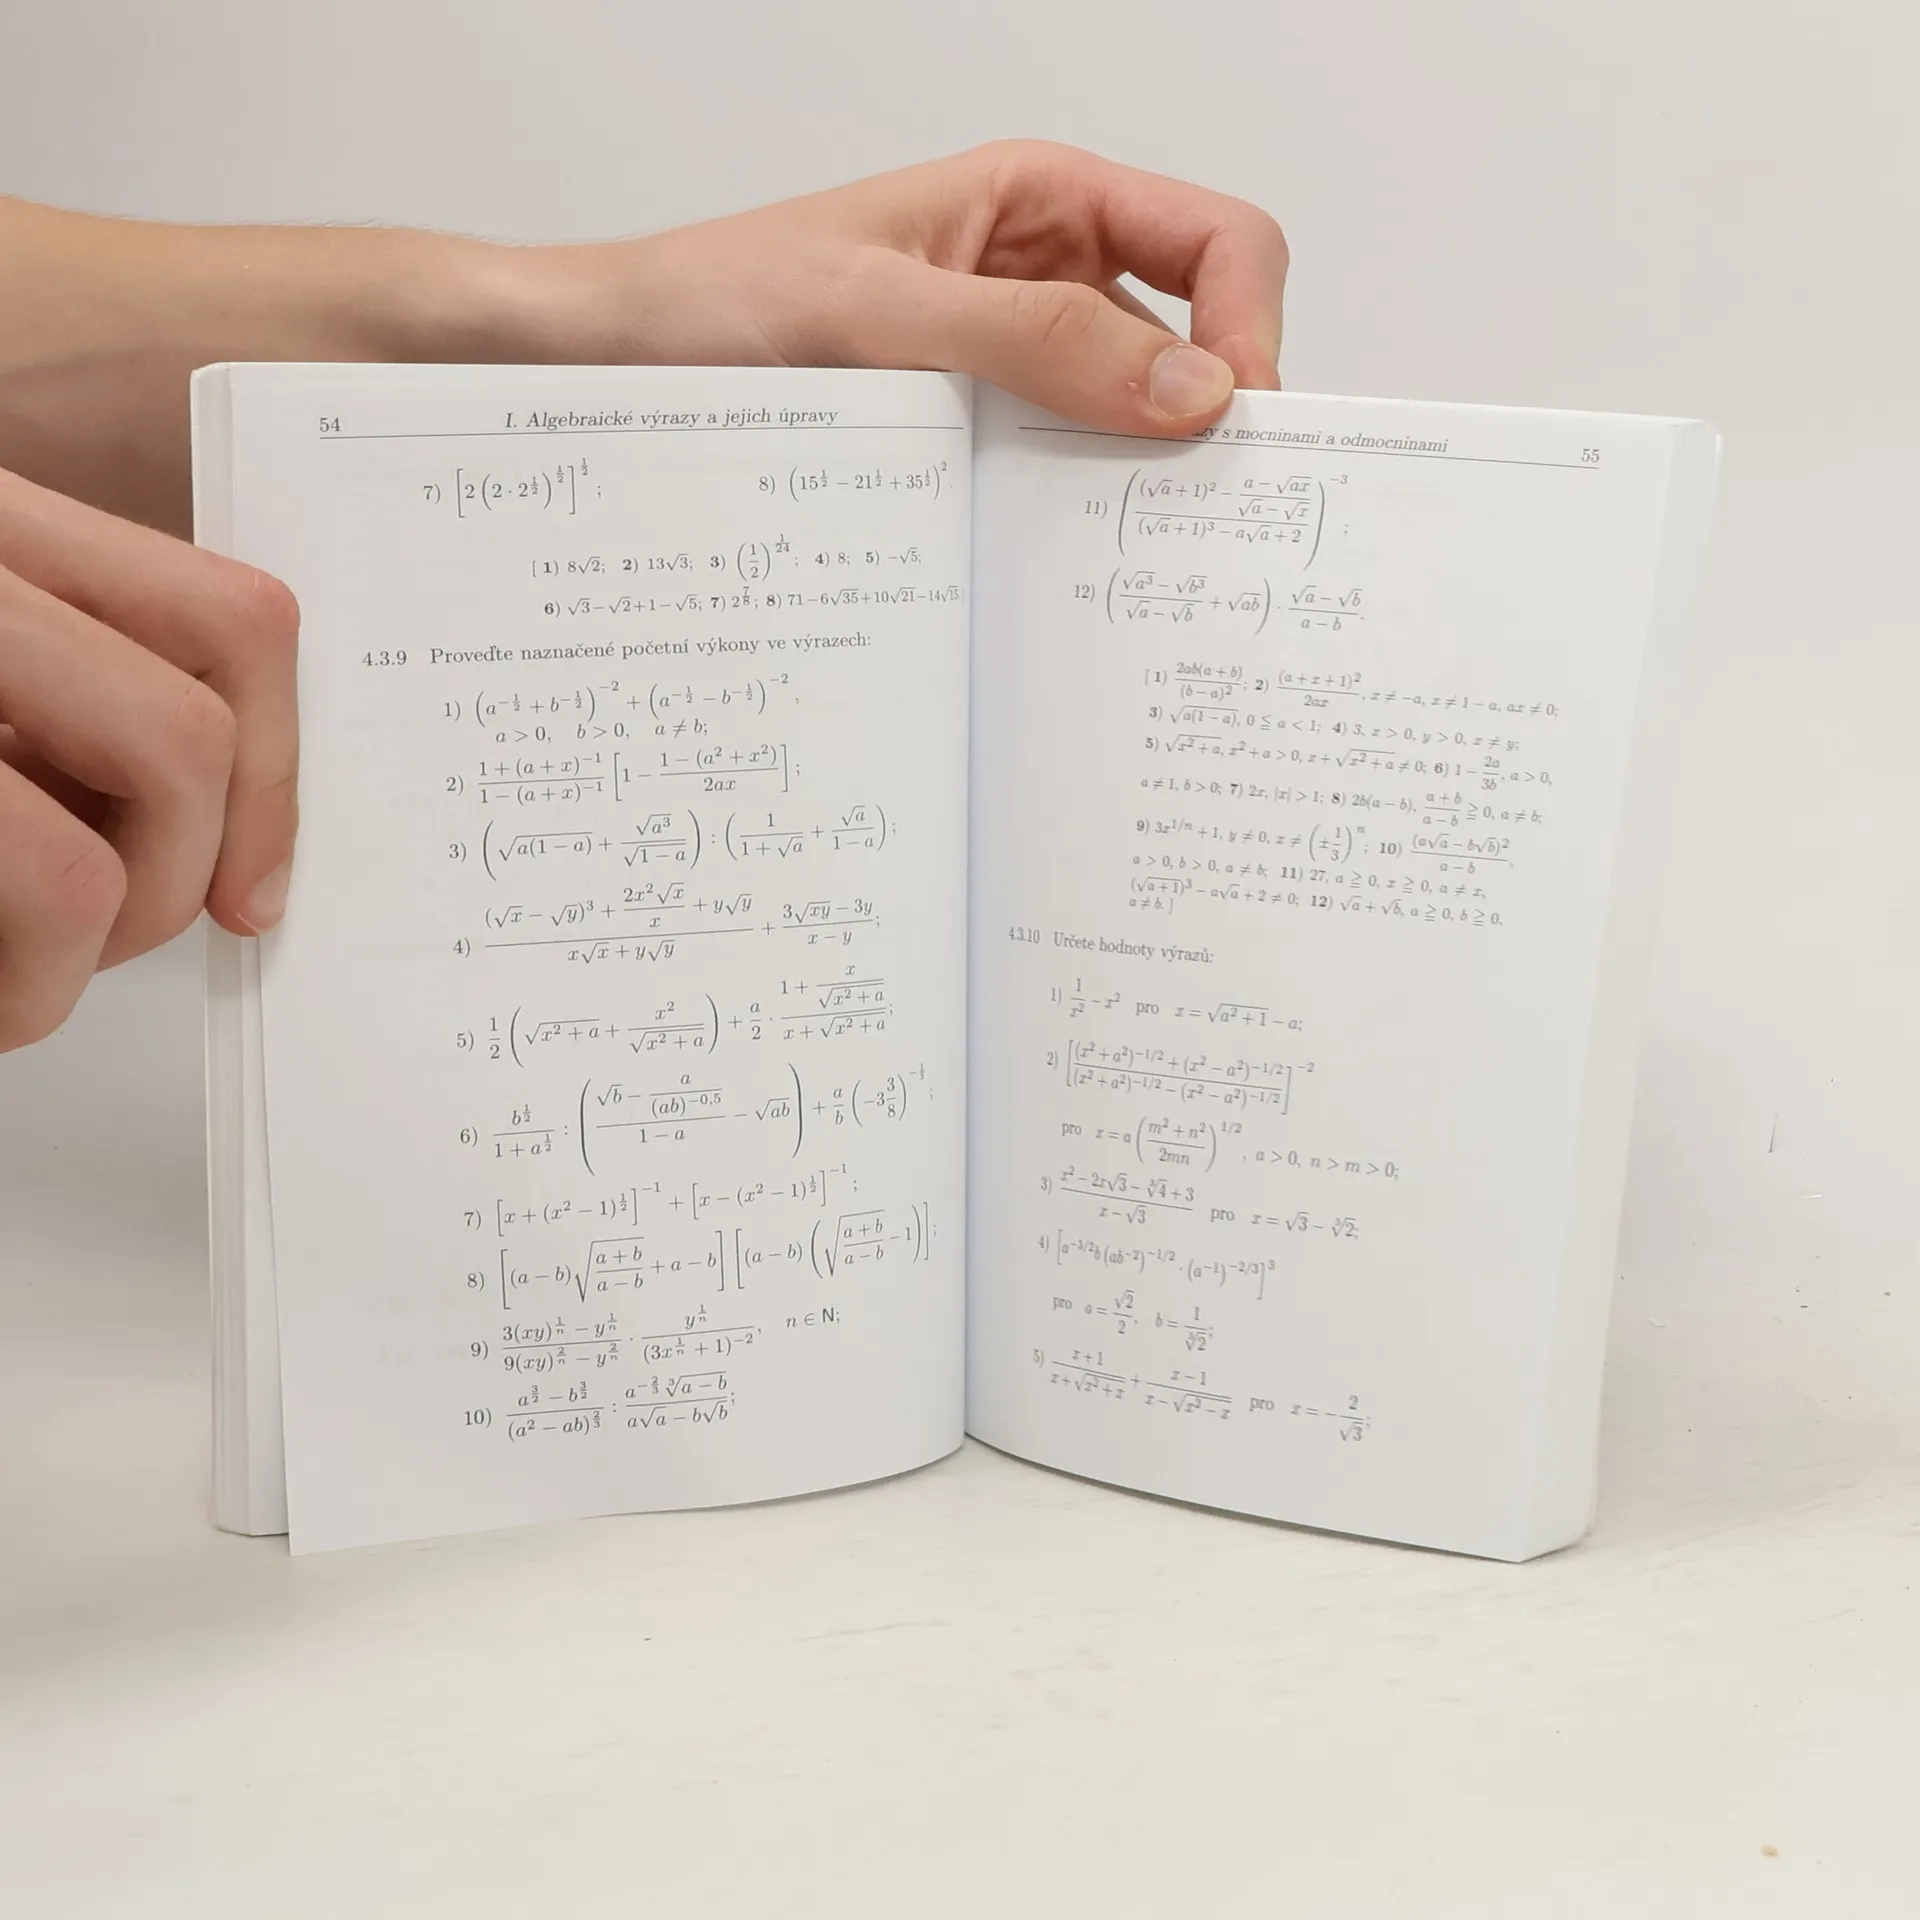 54 I. Algebraické výrazy a jejich úpravy
7) [2(2·2^{1/2})^{1/2}]^{1/2}; 8) (15^{1/2} − 21^{1/2} + 35^{1/2})^2.
[ 1) 8√2; 2) 13√3; 3) (1/2)^{1/24}; 4) 8; 5) −√5;
6) √3−√2+1−√5; 7) 2^{7/8}; 8) 71−6√35+10√21−14√15]
4.3.9 Proveďte naznačené početní výkony ve výrazech:
1) (a^{−1/2} + b^{−1/2})^{−2} + (a^{−1/2} − b^{−1/2})^{−2},
a > 0, b > 0, a ≠ b;
2) (1 + (a + x)^{−1})/(1 − (a + x)^{−1}) [1 − (1 − (a² + x²))/(2ax)];
3) (√(a(1 − a)) + √(a³)/√(1 − a)) : (1/(1 + √a) + √a/(1 − a));
4) ((√x − √y)³ + 2x²√x/x + y√y)/(x√x + y√y) + (3√(xy) − 3y)/(x − y);
5) 1/2 (√(x² + a) + x²/√(x² + a)) + a/2 · (1 + x/√(x² + a))/(x + √(x² + a));
6) b^{1/2}/(1 + a^{1/2}) : ((√b − a/(ab)^{−0,5})/(1 − a) − √(ab)) + a/b (−3 3/8)^{−1/3};
7) [x + (x² − 1)^{1/2}]^{−1} + [x − (x² − 1)^{1/2}]^{−1};
8) [(a − b)√((a + b)/(a − b)) + a − b] [(a − b)(√((a + b)/(a − b)) − 1)];
9) (3(xy)^{1/n} − y^{1/n})/(9(xy)^{2/n} − y^{2/n}) · y^{1/n}/(3x^{1/n} + 1)^{−2}, n ∈ N;
10) (a^{3/2} − b^{3/2})/(a² − ab)^{2/3} : (a^{−2/3} ∛(a − b))/(a√a − b√b);
s mocninami a odmocninami 55
11) (((√a + 1)² − (a − √(ax))/(√a − √x))/((√a + 1)³ − a√a + 2))^{−3};
12) ((√(a³) − √(b³))/(√a − √b) + √(ab)) · (√a − √b)/(a − b).
[ 1) 2ab(a + b)/(b − a)²; 2) (a + x + 1)²/(2ax), x ≠ −a, x ≠ 1 − a, ax ≠ 0;
3) √(a(1 − a)), 0 ≦ a < 1; 4) 3, x > 0, y > 0, x ≠ y;
5) √(x² + a), x² + a > 0, x + √(x² + a) ≠ 0; 6) 1 − 2a/(3b), a > 0,
a ≠ 1, b > 0; 7) 2x, |x| > 1; 8) 2b(a − b), (a + b)/(a − b) ≧ 0, a ≠ b;
9) 3x^{1/n} + 1, y ≠ 0, x ≠ (±1/3)^n; 10) (a√a − b√b)²/(a − b),
a > 0, b > 0, a ≠ b; 11) 27, a ≧ 0, x ≧ 0, a ≠ x,
(√a+1)³ − a√a + 2 ≠ 0; 12) √a + √b, a ≧ 0, b ≧ 0,
a ≠ b. ]
4.3.10 Určete hodnoty výrazů:
1) 1/x² − x² pro x = √(a² + 1) − a;
2) [((x² + a²)^{−1/2} + (x² − a²)^{−1/2})/((x² + a²)^{−1/2} − (x² − a²)^{−1/2})]^{−2}
pro x = a((m² + n²)/(2mn))^{1/2}, a > 0, n > m > 0;
3) (x² − 2x√3 − ∛4 + 3)/(x − √3) pro x = √3 − ∛2;
4) [a^{−3/2}b(ab^{−2})^{−1/2} · (a^{−1})^{−2/3}]³
pro a = √2/2, b = 1/∛2;
5) (x + 1)/(x + √(x² + x)) + (x − 1)/(x − √(x² − x)) pro x = −2/√3;